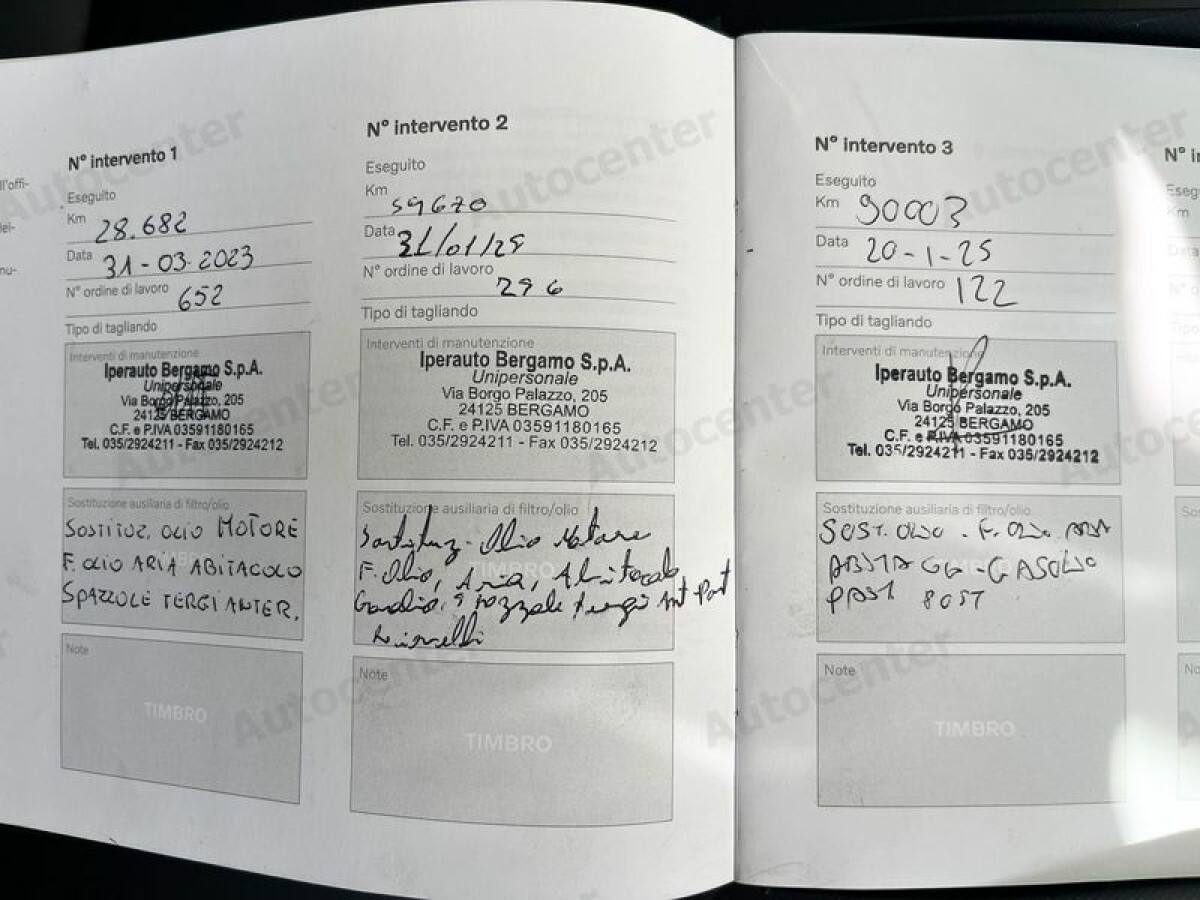 N° intervento 1
Eseguito
Km 28.682
Data 31-03-2023
N° ordine di lavoro 652
Tipo di tagliando
Interventi di manutenzione
Iperauto Bergamo S.p.A.
Unipersonale
Via Borgo Palazzo, 205
24125 BERGAMO
C.F. e P.IVA 03591180165
Tel. 035/2924211 - Fax 035/2924212
Sostituzione ausiliaria di filtro/olio
SOSTITUZ. OLIO MOTORE
F. OLIO ARIA ABITACOLO
SPAZZOLE TERGI ANTER.
Note
TIMBRO
N° intervento 2
Eseguito
Km 59670
Data
N° ordine di lavoro 296
Tipo di tagliando
Interventi di manutenzione
Iperauto Bergamo S.p.A.
Unipersonale
Via Borgo Palazzo, 205
24125 BERGAMO
C.F. e P.IVA 03591180165
Tel. 035/2924211 - Fax 035/2924212
Sostituzione ausiliaria di filtro/olio
Sostituz. Olio Motore
F. Olio, Aria, Abitacolo
Gasolio, Spazzole tergi Ant Post
Note
TIMBRO
N° intervento 3
Eseguito
Km 90003
Data 20-1-25
N° ordine di lavoro 122
Tipo di tagliando
Interventi di manutenzione
Iperauto Bergamo S.p.A.
Unipersonale
Via Borgo Palazzo, 205
24125 BERGAMO
C.F. e P.IVA 03591180165
Tel. 035/2924211 - Fax 035/2924212
Sostituzione ausiliaria di filtro/olio
SOST. OLIO - F. OLIO
GASOLIO
POST
Note
TIMBRO
Autocenter